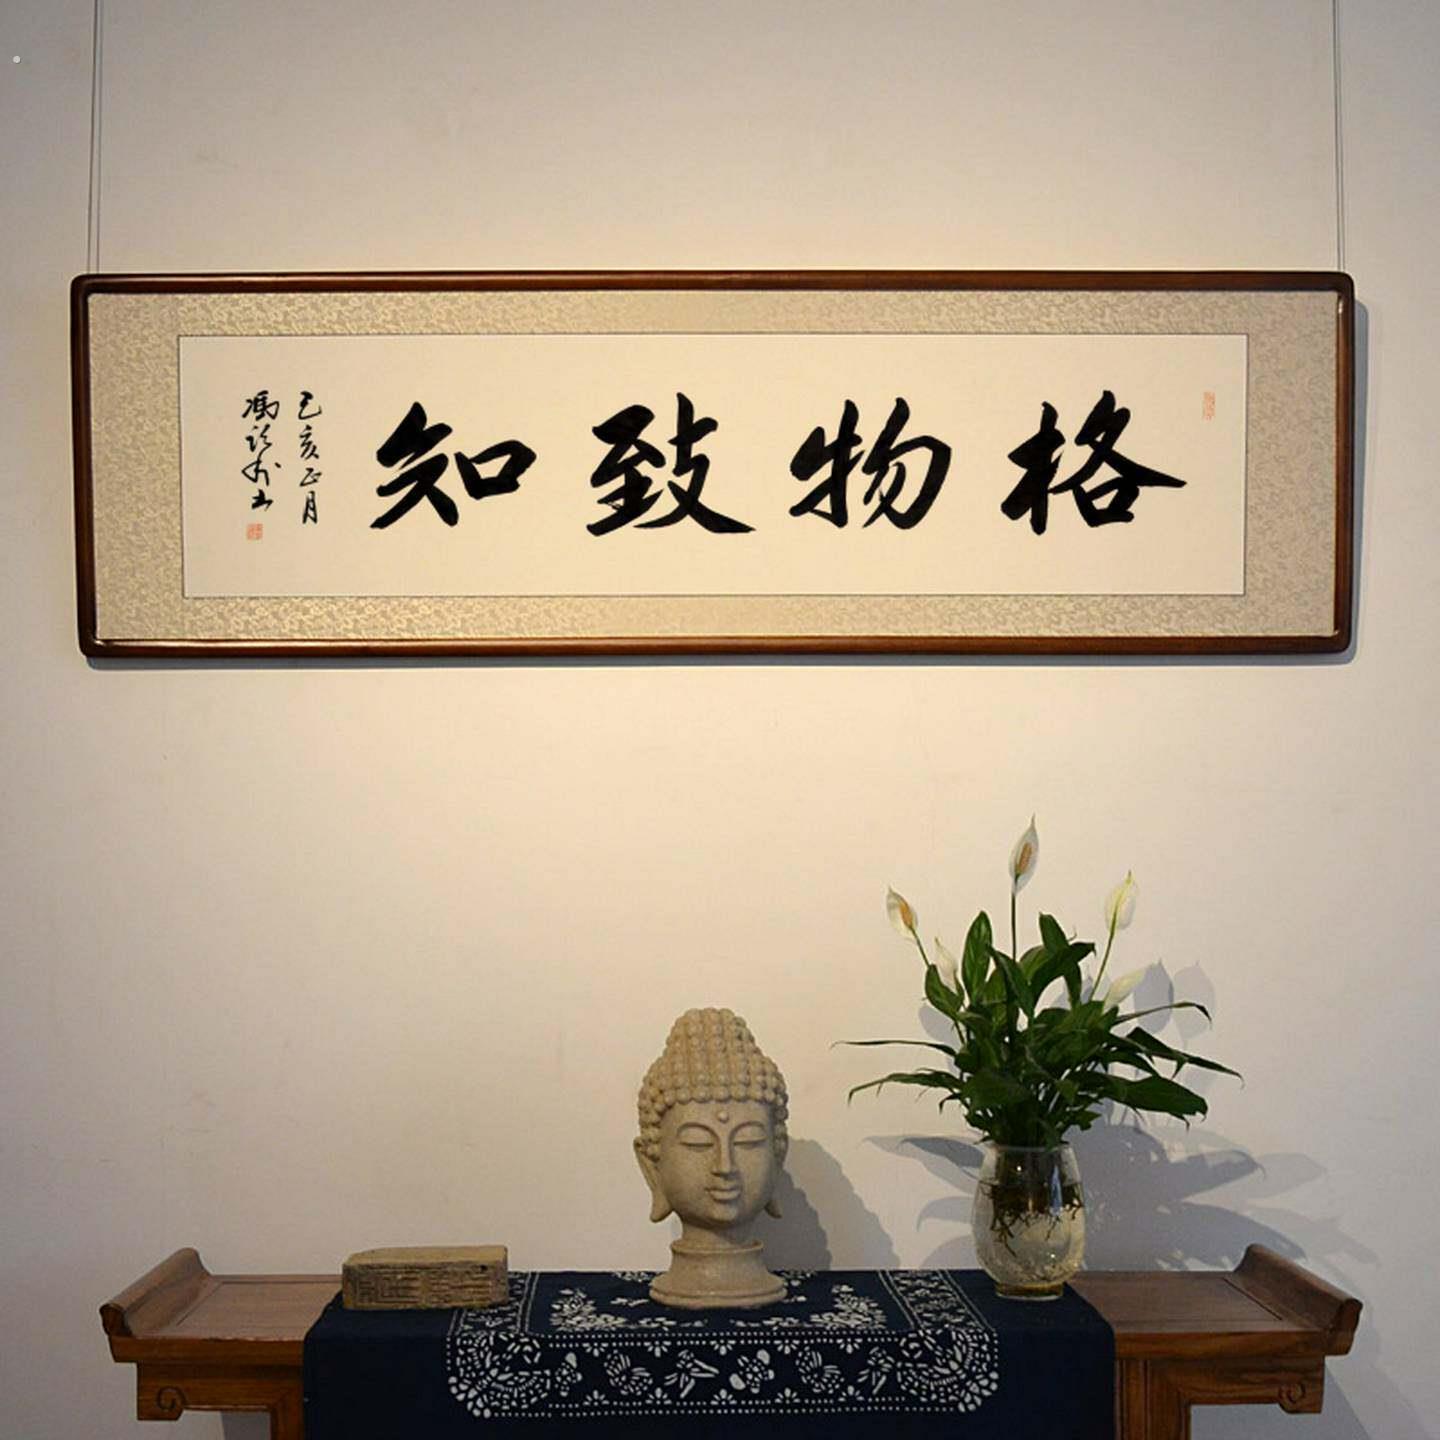 格物致知
己亥正月
冯